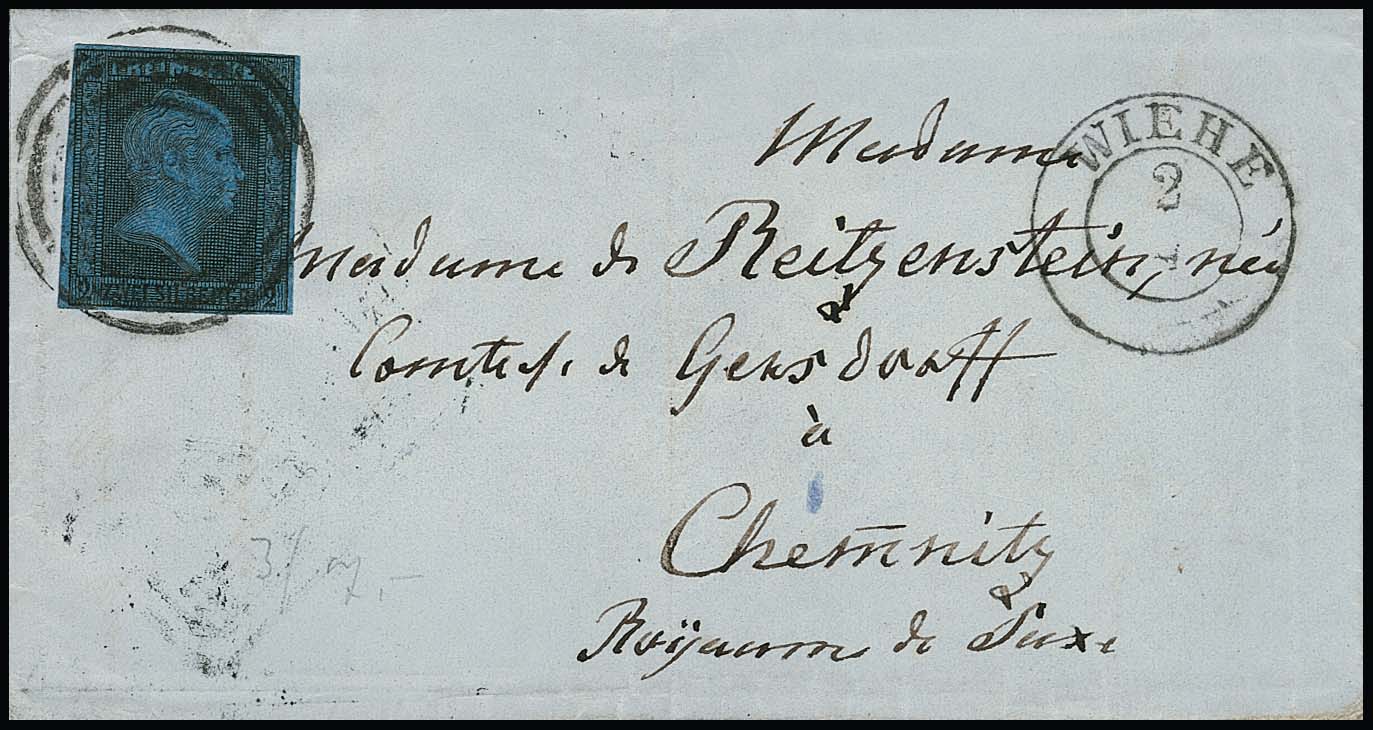 FREIMARKE
2 SILBERGR. 2
WIEHE
2
Madame
Madame de Reitzenstein, née
Comtesse de Gersdorff
à
Chemnitz
Royaume de Saxe
3/